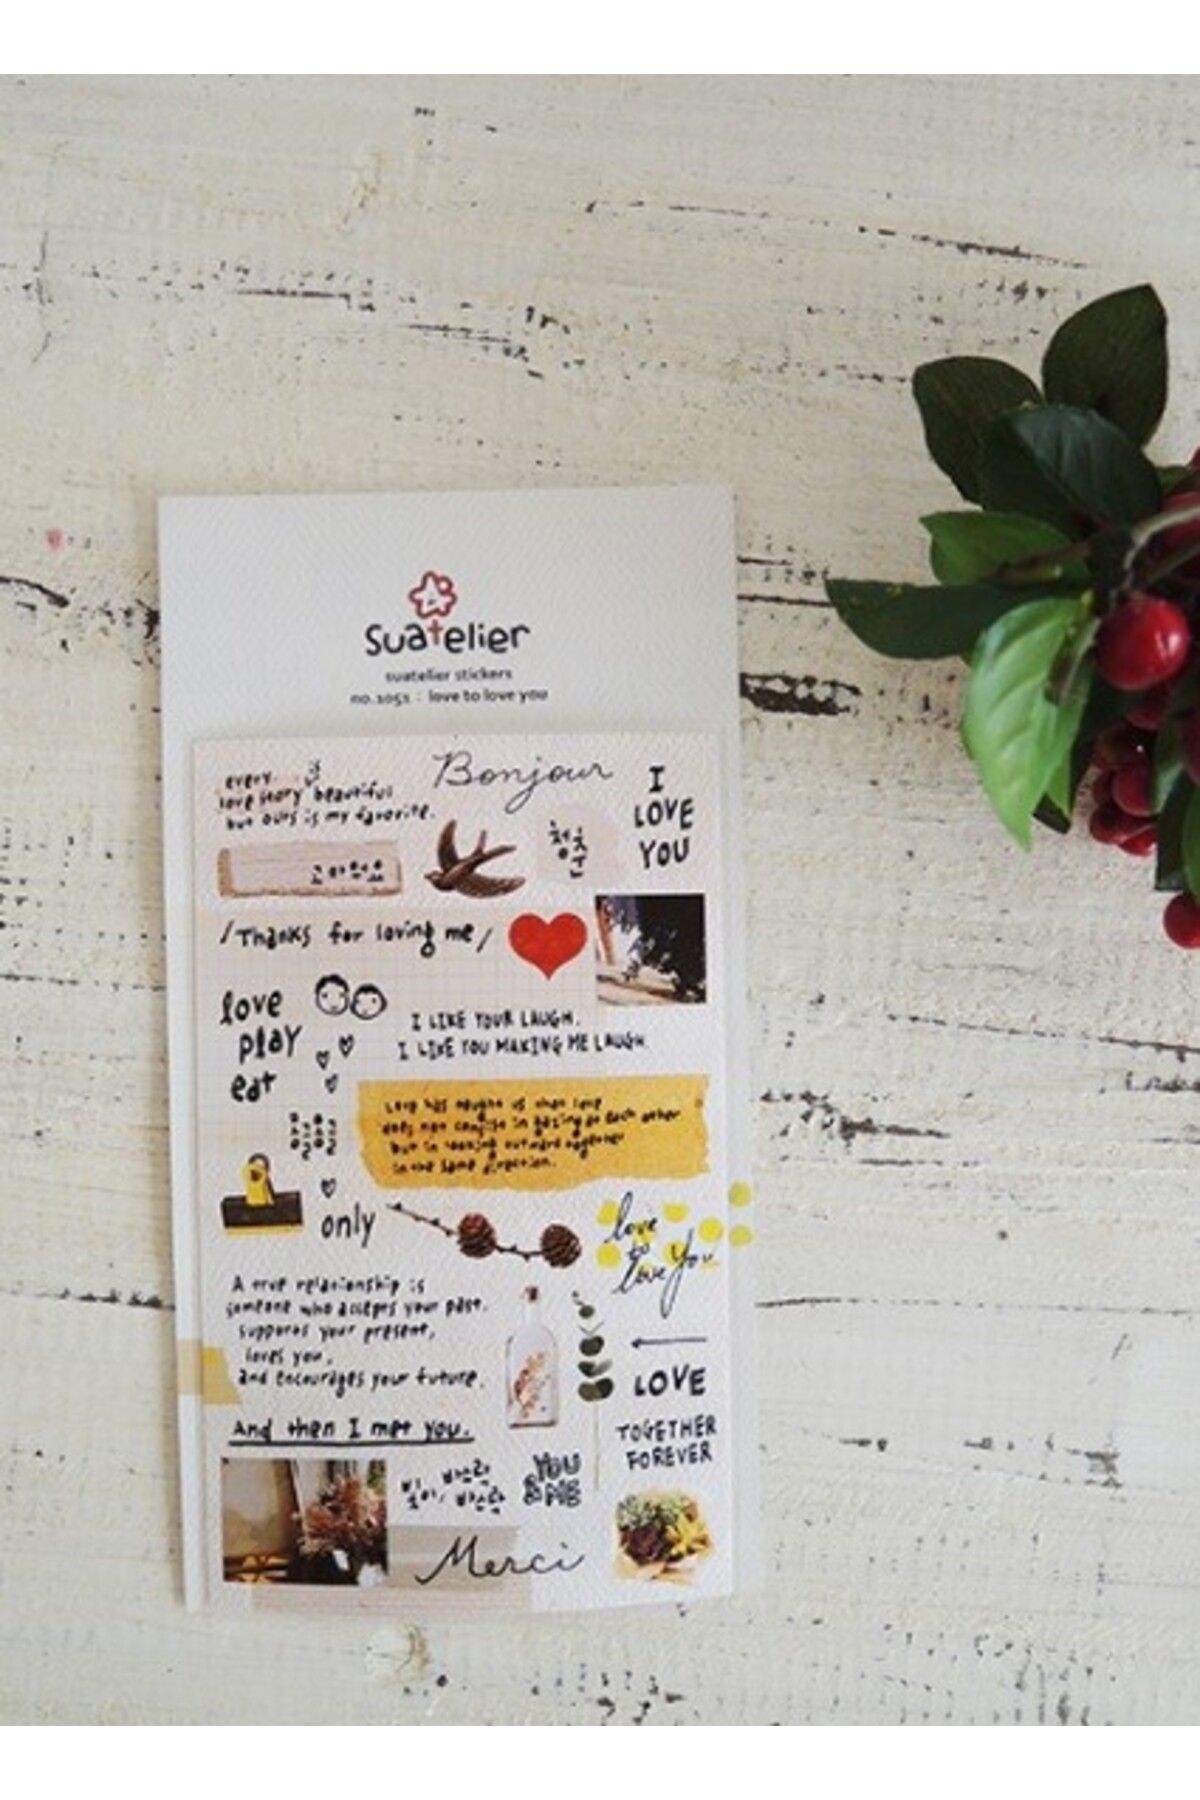 suatelier
suatelier stickers
no.1051 : love to love you
every
love story beautiful
but ours is my favorite.
Bonjour
I
LOVE
YOU
고마워요
청춘
/Thanks for loving me/
love
play
eat
I LIKE YOUR LAUGH.
I LIKE YOU MAKING ME LAUGH.
Love has taught us that love
does not consist in gazing at each other
but in looking outward together
in the same direction.
only
love
to
love you
A true relationship is
someone who accepts your past,
supports your present,
loves you,
and encourages your future.
And then I met you.
LOVE
TOGETHER
FOREVER
빛이, 바스락
바스락
YOU
& ME
Merci